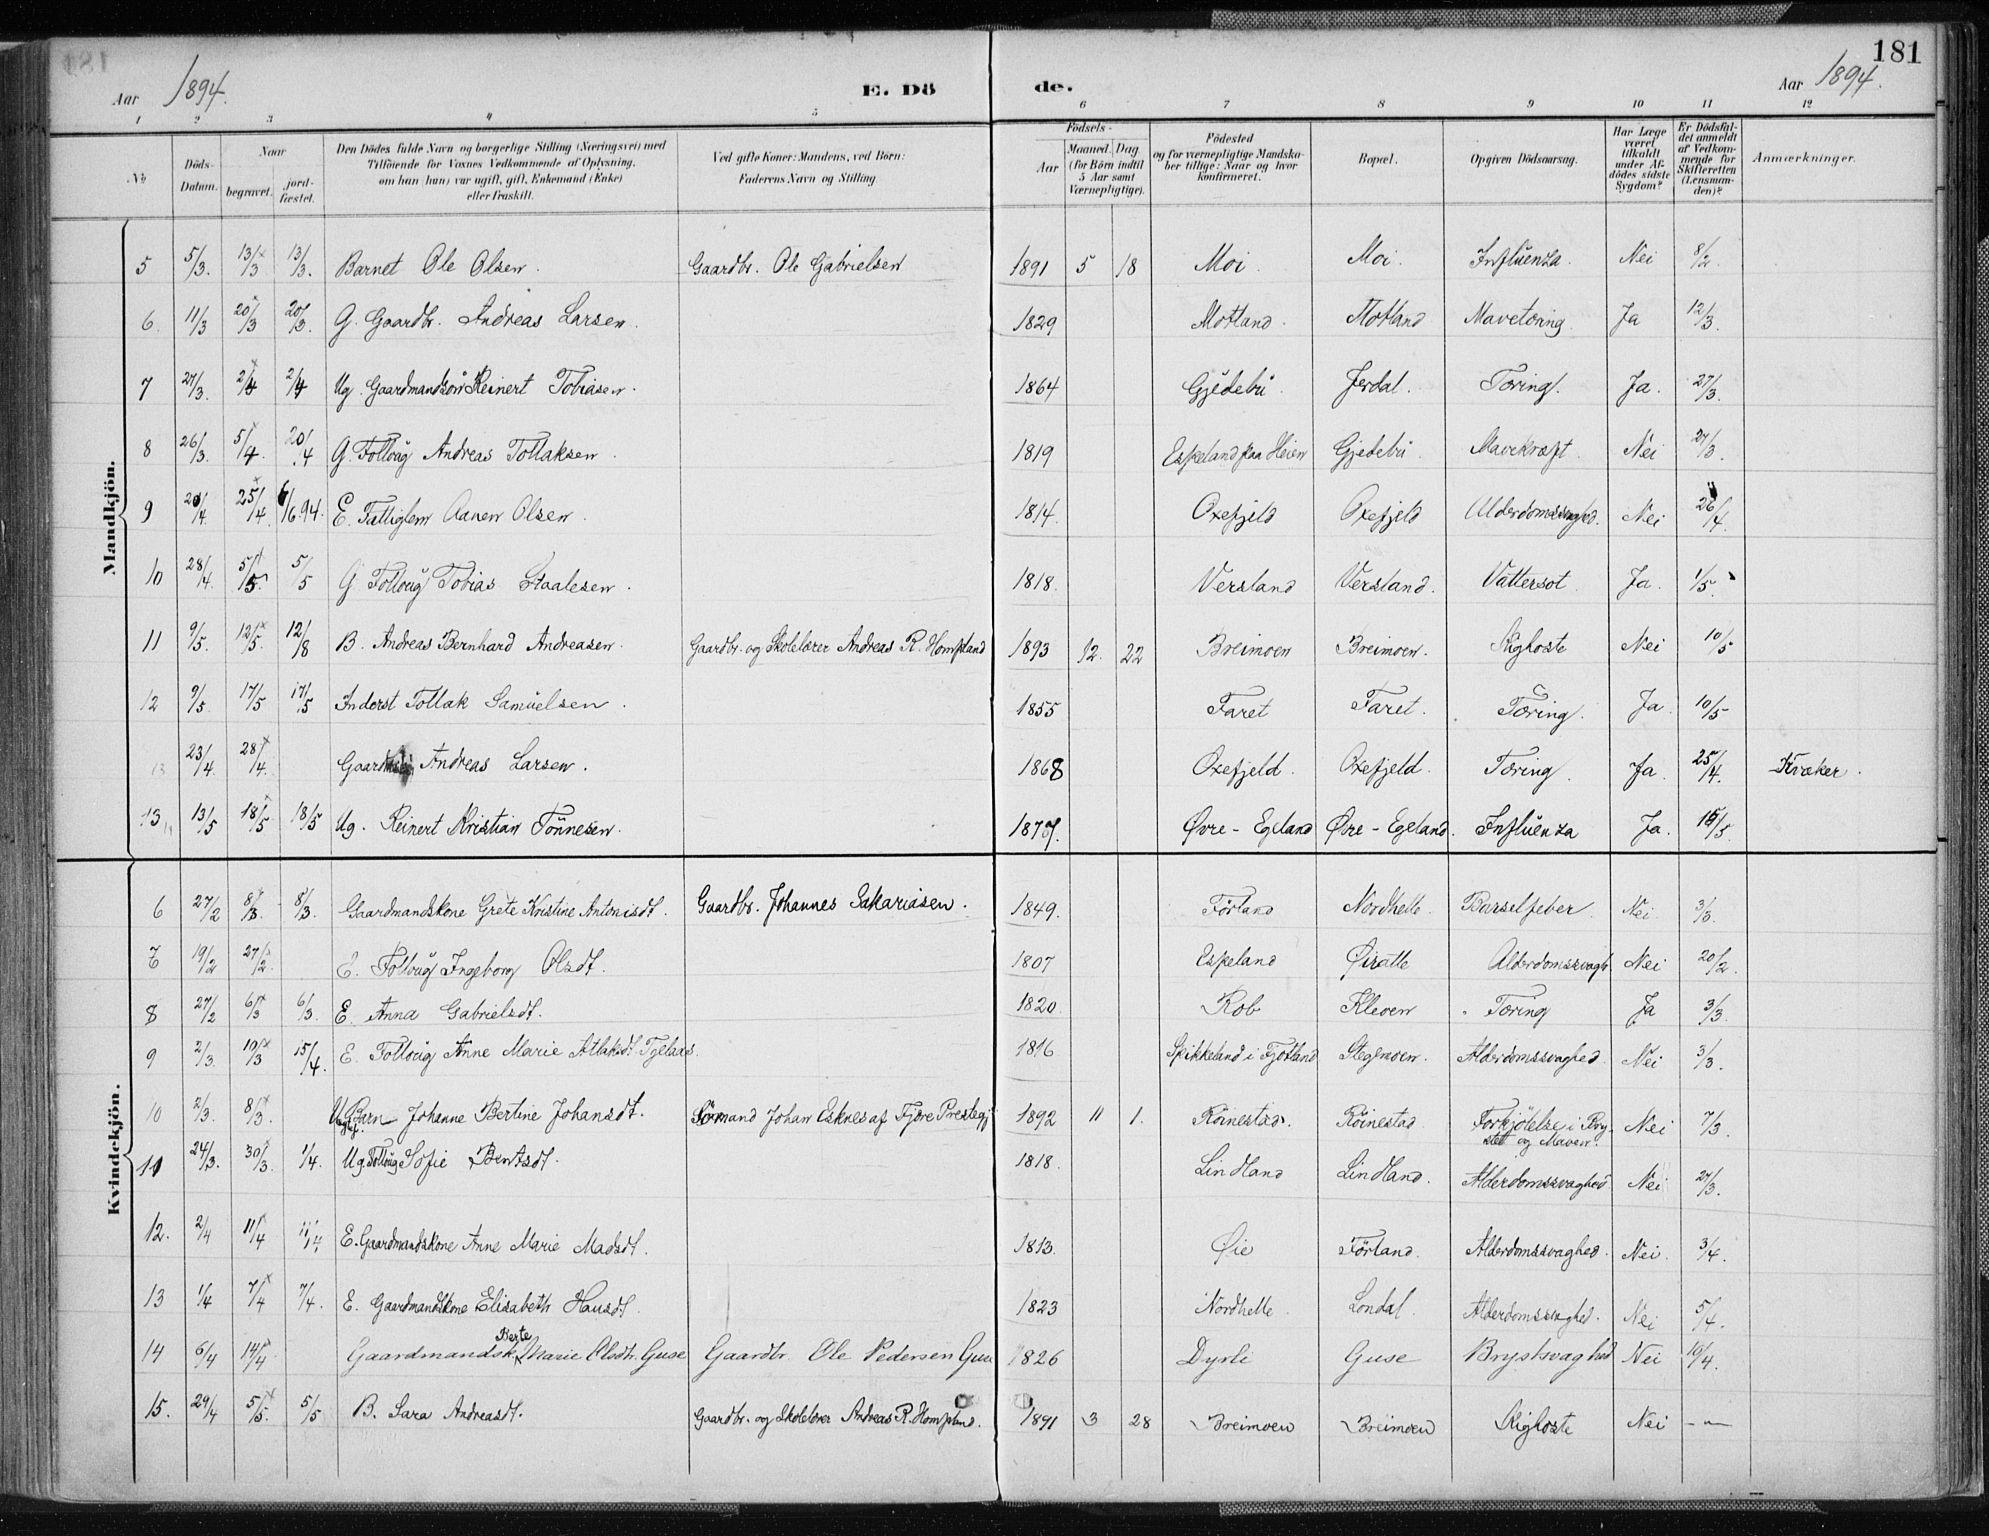 181
Aar 1894.
E. Dö de.
Aar 1894.
1 2 3 4 5 6 7 8 9 10 11 12
№ Döds-Datum. Naar begravet. jord-fæstet. Den Dödes fulde Navn og borgerlige Stilling (Næringsvei) med Tilföiende for Voxnes Vedkommende af Oplysning, om han (hun) var ugift, gift, Enkemand (Enke) eller fraskilt. Ved gifte Koner: Mandens, ved Börn: Faderens Navn og Stilling Födsels- Aar Maaned. Dag. (for Börn indtil 5 Aar samt Værnepligtige). Födested og for værnepligtige Mandskaber tillige: Naar og hvor konfirmeret. Bopæl. Opgiven Dödsaarsag. Har Læge været tilkaldt under Afdödes sidste Sygdom? Er Dödsfaldet anmeldt af Vedkommende for Skifteretten (Lensmanden)? Anmærkninger.
Mandkjön.
5 5/3. 13/3 13/3. Barnet Ole Olsen. Gaardbr. Ole Gabrielsen 1891 5 18 Moi. Moi. Influenza. Nei 8/2.
6. 11/3 20/3 20/3. G. Gaardbr. Andreas Larsen. 1829 Motland. Motland Mavetæring. Ja 12/3.
7 27/3. 2/4 2/4 Ug. Gaardmandsön Reinert Tobiasen. 1864 Gjedebu. Jerdal. Tæring. Ja. 27/3.
8 26/3. 5/4. 20/4 G. Folloug Andreas Tollaksen. 1819 Espeland paa Heien Gjedebu. Mavekræft. Nei 27/3.
9 20/4. 25/4. 6/6 94. E. Fattiglem Aanen Olsen. 1814. Oxefjeld Oxefjeld Alderdomssvaghed. Nei 26/4.
10 28/4. 5/5. 5/5 G. Folloug Tobias Staalesen. 1818. Versland Versland. Vattersot. Ja. 1/5.
11 9/5. 12/5. 12/8 B. Andreas Bernhard Andreasen. Gaardbr. og Skolelærer Andreas R. Hompland 1893 12. 22 Breimoen Breimoen. Kighoste Nei 10/5
12 9/5. 17/5 17/5 Inderst Tollak Samuelsen. 1855 Faret Faret. Tæring. Ja 10/5
13 23/4. 28/4. Andreas Larsen. 1868 Oxefjeld. Oxefjeld. Tæring. Ja. 25/4. Kvæker.
13 13/5 18/5 18/5 Ug. Reinert Kristian Tönnesen. 1877. Øvre-Egeland Øvre-Egeland. Influenza Ja. 15/5.
Kvindekjön.
6 27/2 8/3. 8/3. Gaardmandskone Grete Kristine Antonisdt. Gaardbr. Johannes Sakariasen. 1849. Förland Nordhelle. Barselfeber Nei 3/3.
7 19/2 27/2. E. Folloug Ingeborg Olsdt. 1807 Espeland Øiratte Alderdomssvagh. Nei 20/2.
8 27/2 6/3 6/3. E. Anna Gabrielsdt. 1820. Rob Kleven Tæring Ja 3/3.
9 2/3. 10/3 15/4. E. Folloug Anne Marie Atlaksdt. 1816 Spikkeland i Fjotland Stegemoen. Alderdomssvaghed. Nei 3/3.
10 2/3. 8/3. Barn Johanne Bertine Johansdt. Sömand Johan Esknes af Fjære Prestegj 1892 11 1. Röinestad. Röinestad Forkjölelse i Brystet og Maven. Nei 7/3.
11 24/3. 30/3 1/4. Ug. Folloug Sofie Berntsdt. 1818. Lindland Lindland. Alderdomssvaghed Nei 27/3.
12. 2/4 11/4 11/4. E. Gaardmandskone Anne Marie Madsdt. 1813. Øie Förland. Alderdomssvaghed. Nei. 3/4.
13 1/4 7/4 7/4. E. Gaardmandskone Elisabeth Hansdt. 1823 Nordhelle Londal. Alderdomssvaghed. Nei 5/4.
14 6/4 14/4 Gaardmandsk. Berte Marie Olsdtr. Guse Gaardbr Ole Pedersen Guse 1826 Dyrli Guse Brystsvaghed Nei 10/4.
15. 29/4 5/5. 5/5 B. Sara Andreasdt. Gaardbr. og Skolelærer Andreas R. Hompland. 1891 3 28 Breimoen Breimoen Kighoste Nei -"-